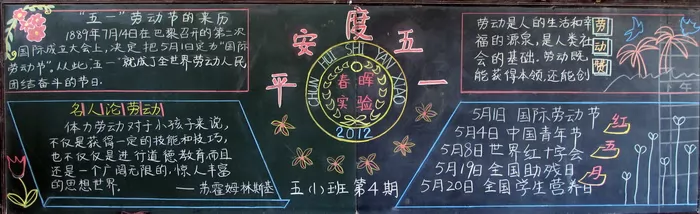 "五一"劳动节的来历
1889年7月14日在巴黎召开的第二次
国际成立大会上,决定把5月1日定为"国际
劳动节"。从此,五一就成了全世界劳动人民
团结奋斗的节日.
名人论劳动
体力劳动对于小孩子来说,
不仅是获得一定的技能和技巧,
也不仅仅是进行道德教育而且
还是一个广阔无限的,惊人丰富
的思想世界。
——苏霍姆林斯基
平安度五一
CHUN HUI SHI YAN XIAO
春晖
实验
2012
五(小)班第4期
劳动是人的生活和幸
福的源泉,是人类社
会的基础。劳动既
能获得本领,还能创
劳
动
5月1日 国际劳动节
5月4日 中国青年节
5月8日 世界红十字会
5月19日 全国助残日
5月20日 全国学生营养日
红
五
月